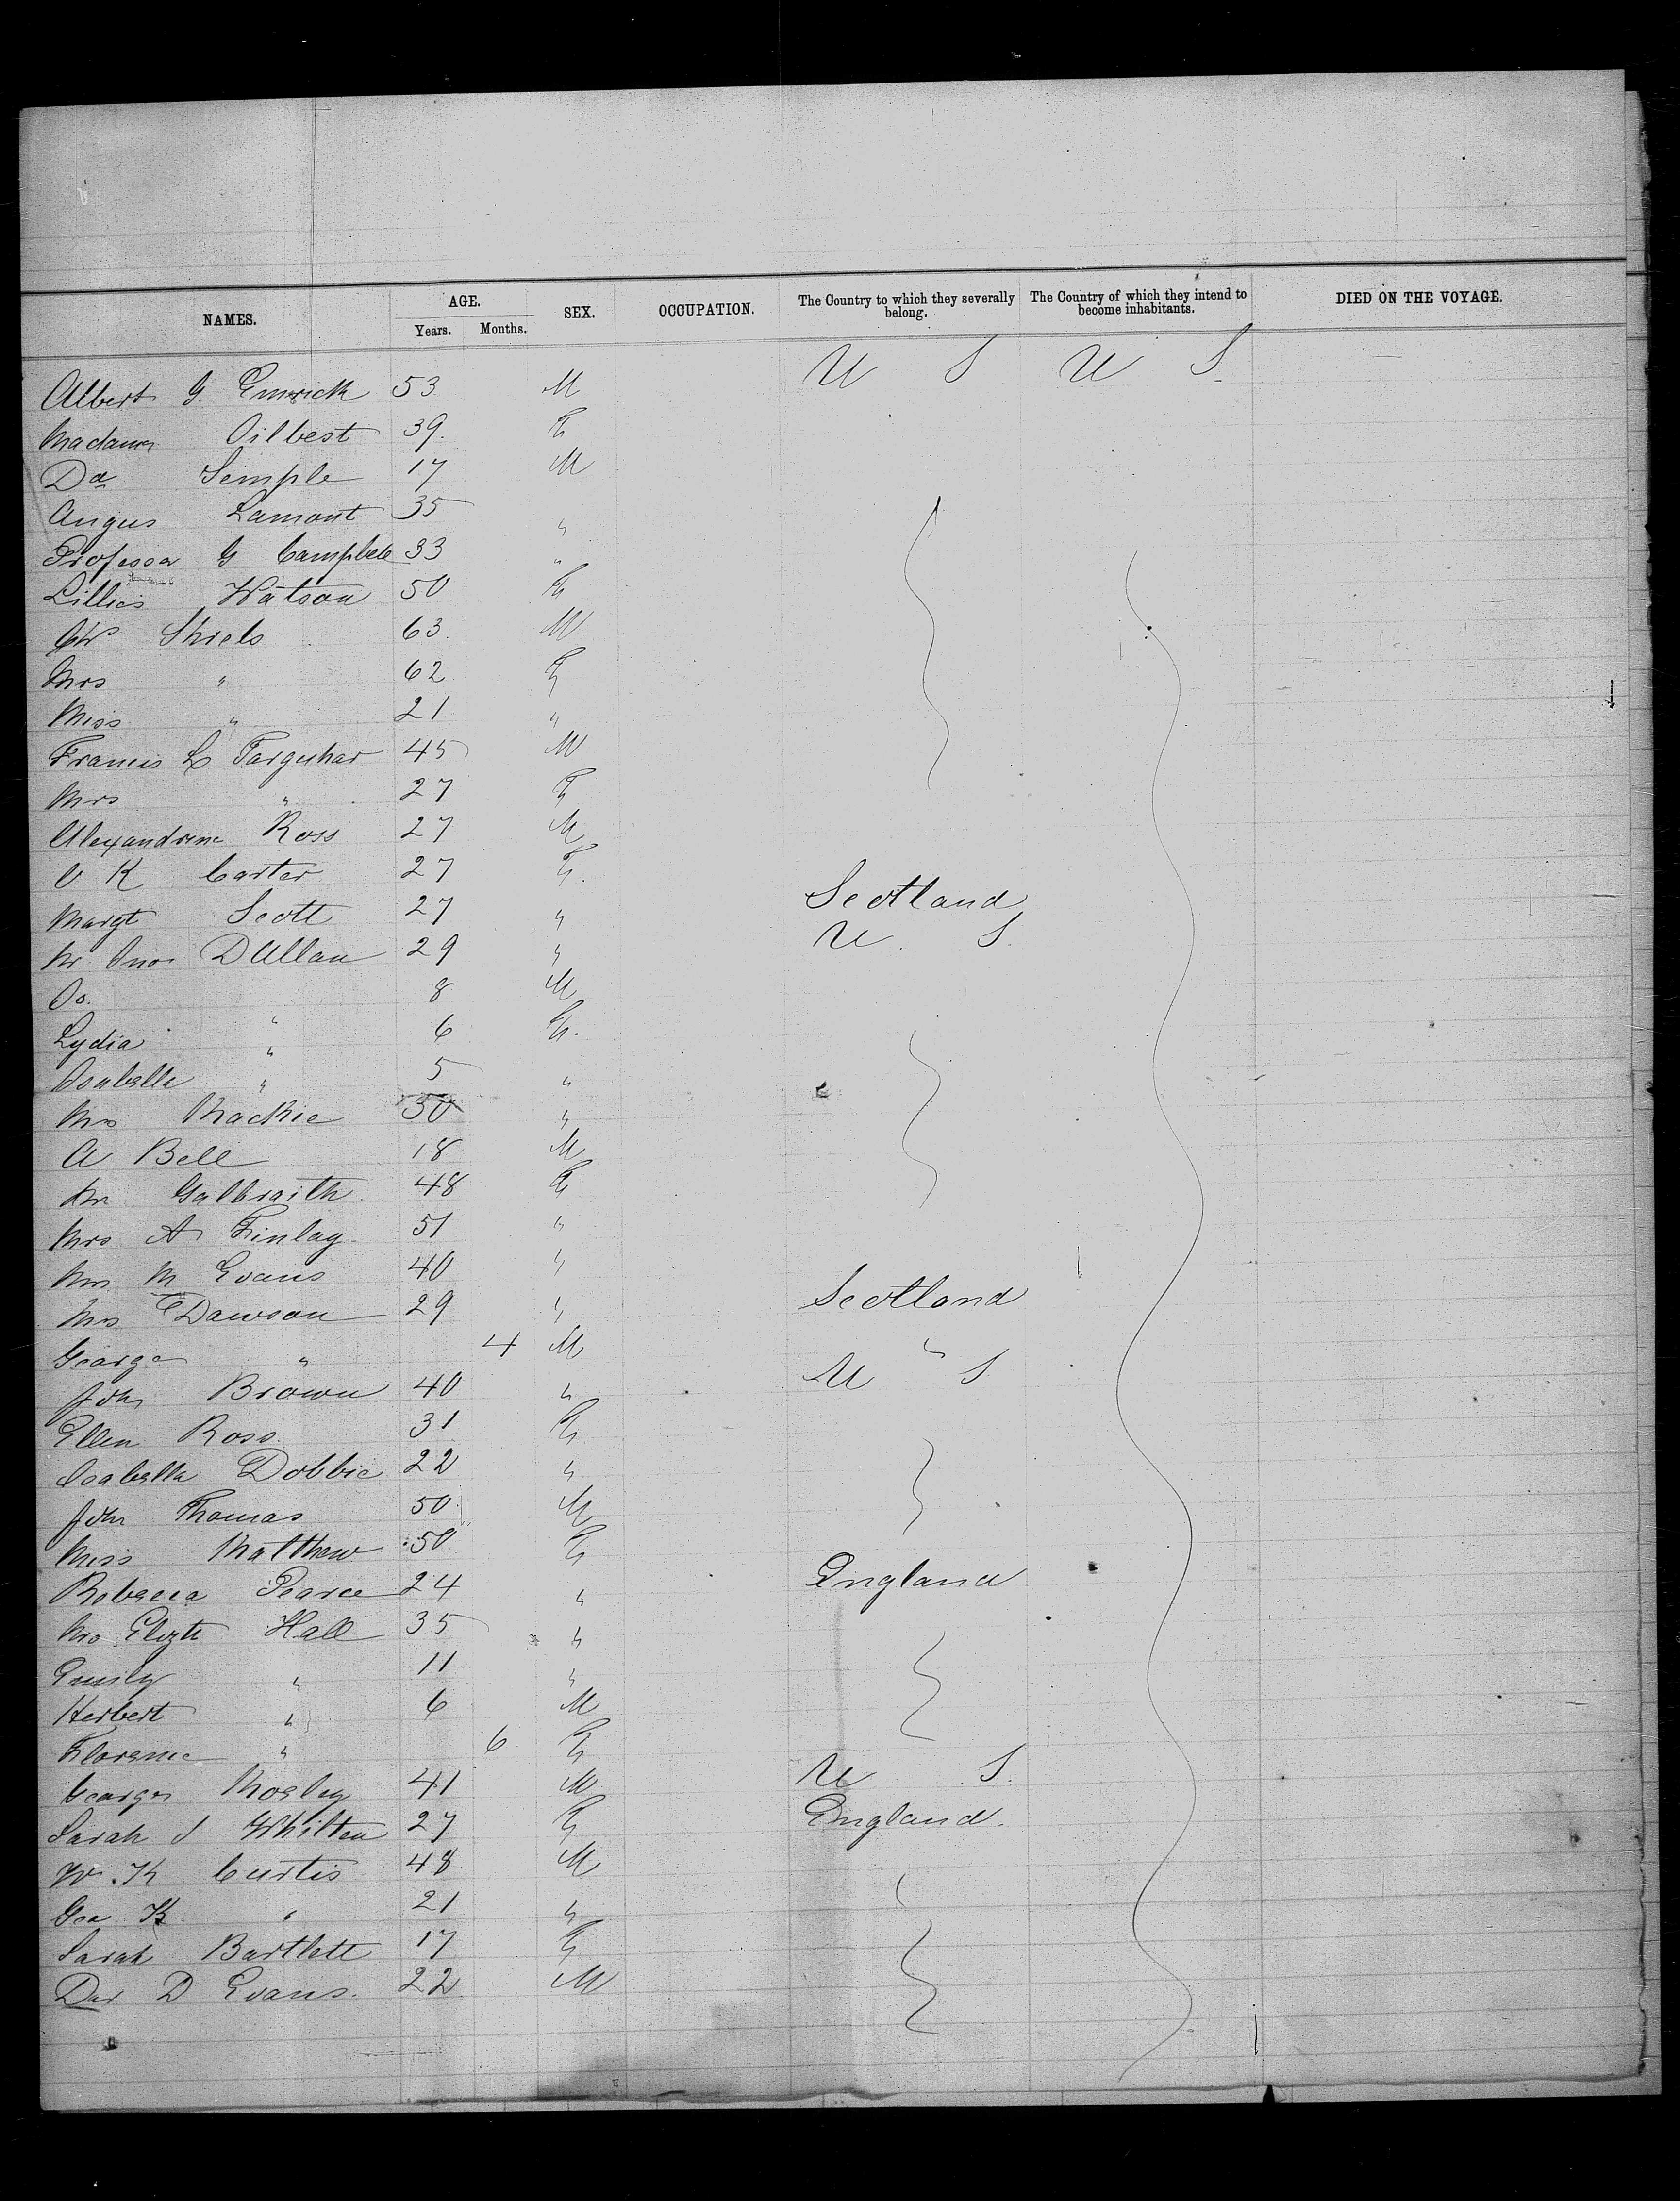 NAMES. AGE. Years. Months. SEX. OCCUPATION. The Country to which they severally belong. The Country of which they intend to become inhabitants. DIED ON THE VOYAGE.
Albert G. Emrick 53 M U S U S
Madam Oilbest 39. F
Da Semple 17 M
Angus Lamont 35 "
Professor G Campbell 33 "
Lillies Watson 50 F
Shiels 63. M
Mrs " 62 F
Miss " 21 "
Francis L Farquhar 45 M
Mrs " 27 F
Alexandrine Ross 27 M
K Carter 27 F.
Margt Scott 27 " Scotland
DAllan 29 " U. S.
Do. " 8 M
Lydia " 6 F.
Isabella " 5 "
Mrs Mackie 30 "
A Bell 18 M
Galbraith 48 F
Mrs A Finlay 51 "
Mrs M Evans 40 "
Mrs E Dawson 29 " Scotland
George " 4 M "
John Brown 40 " U S
Ellen Ross. 31 F
Isabella Dobbie 22 "
John Thomas 50 M
Miss Matthew 50 F
Rebecca Pearce 24 " England
Mrs Elizth Hall 35 "
Emily " 11 "
Herbert " 6 M
Florence " 6 F
George Mosley 41 M U S.
Sarah J Whitten 27 F England.
W. K Curtis 48 M
Geo K " 21 "
Sarah Bartlett 17 F
Dav D Evans. 22 M